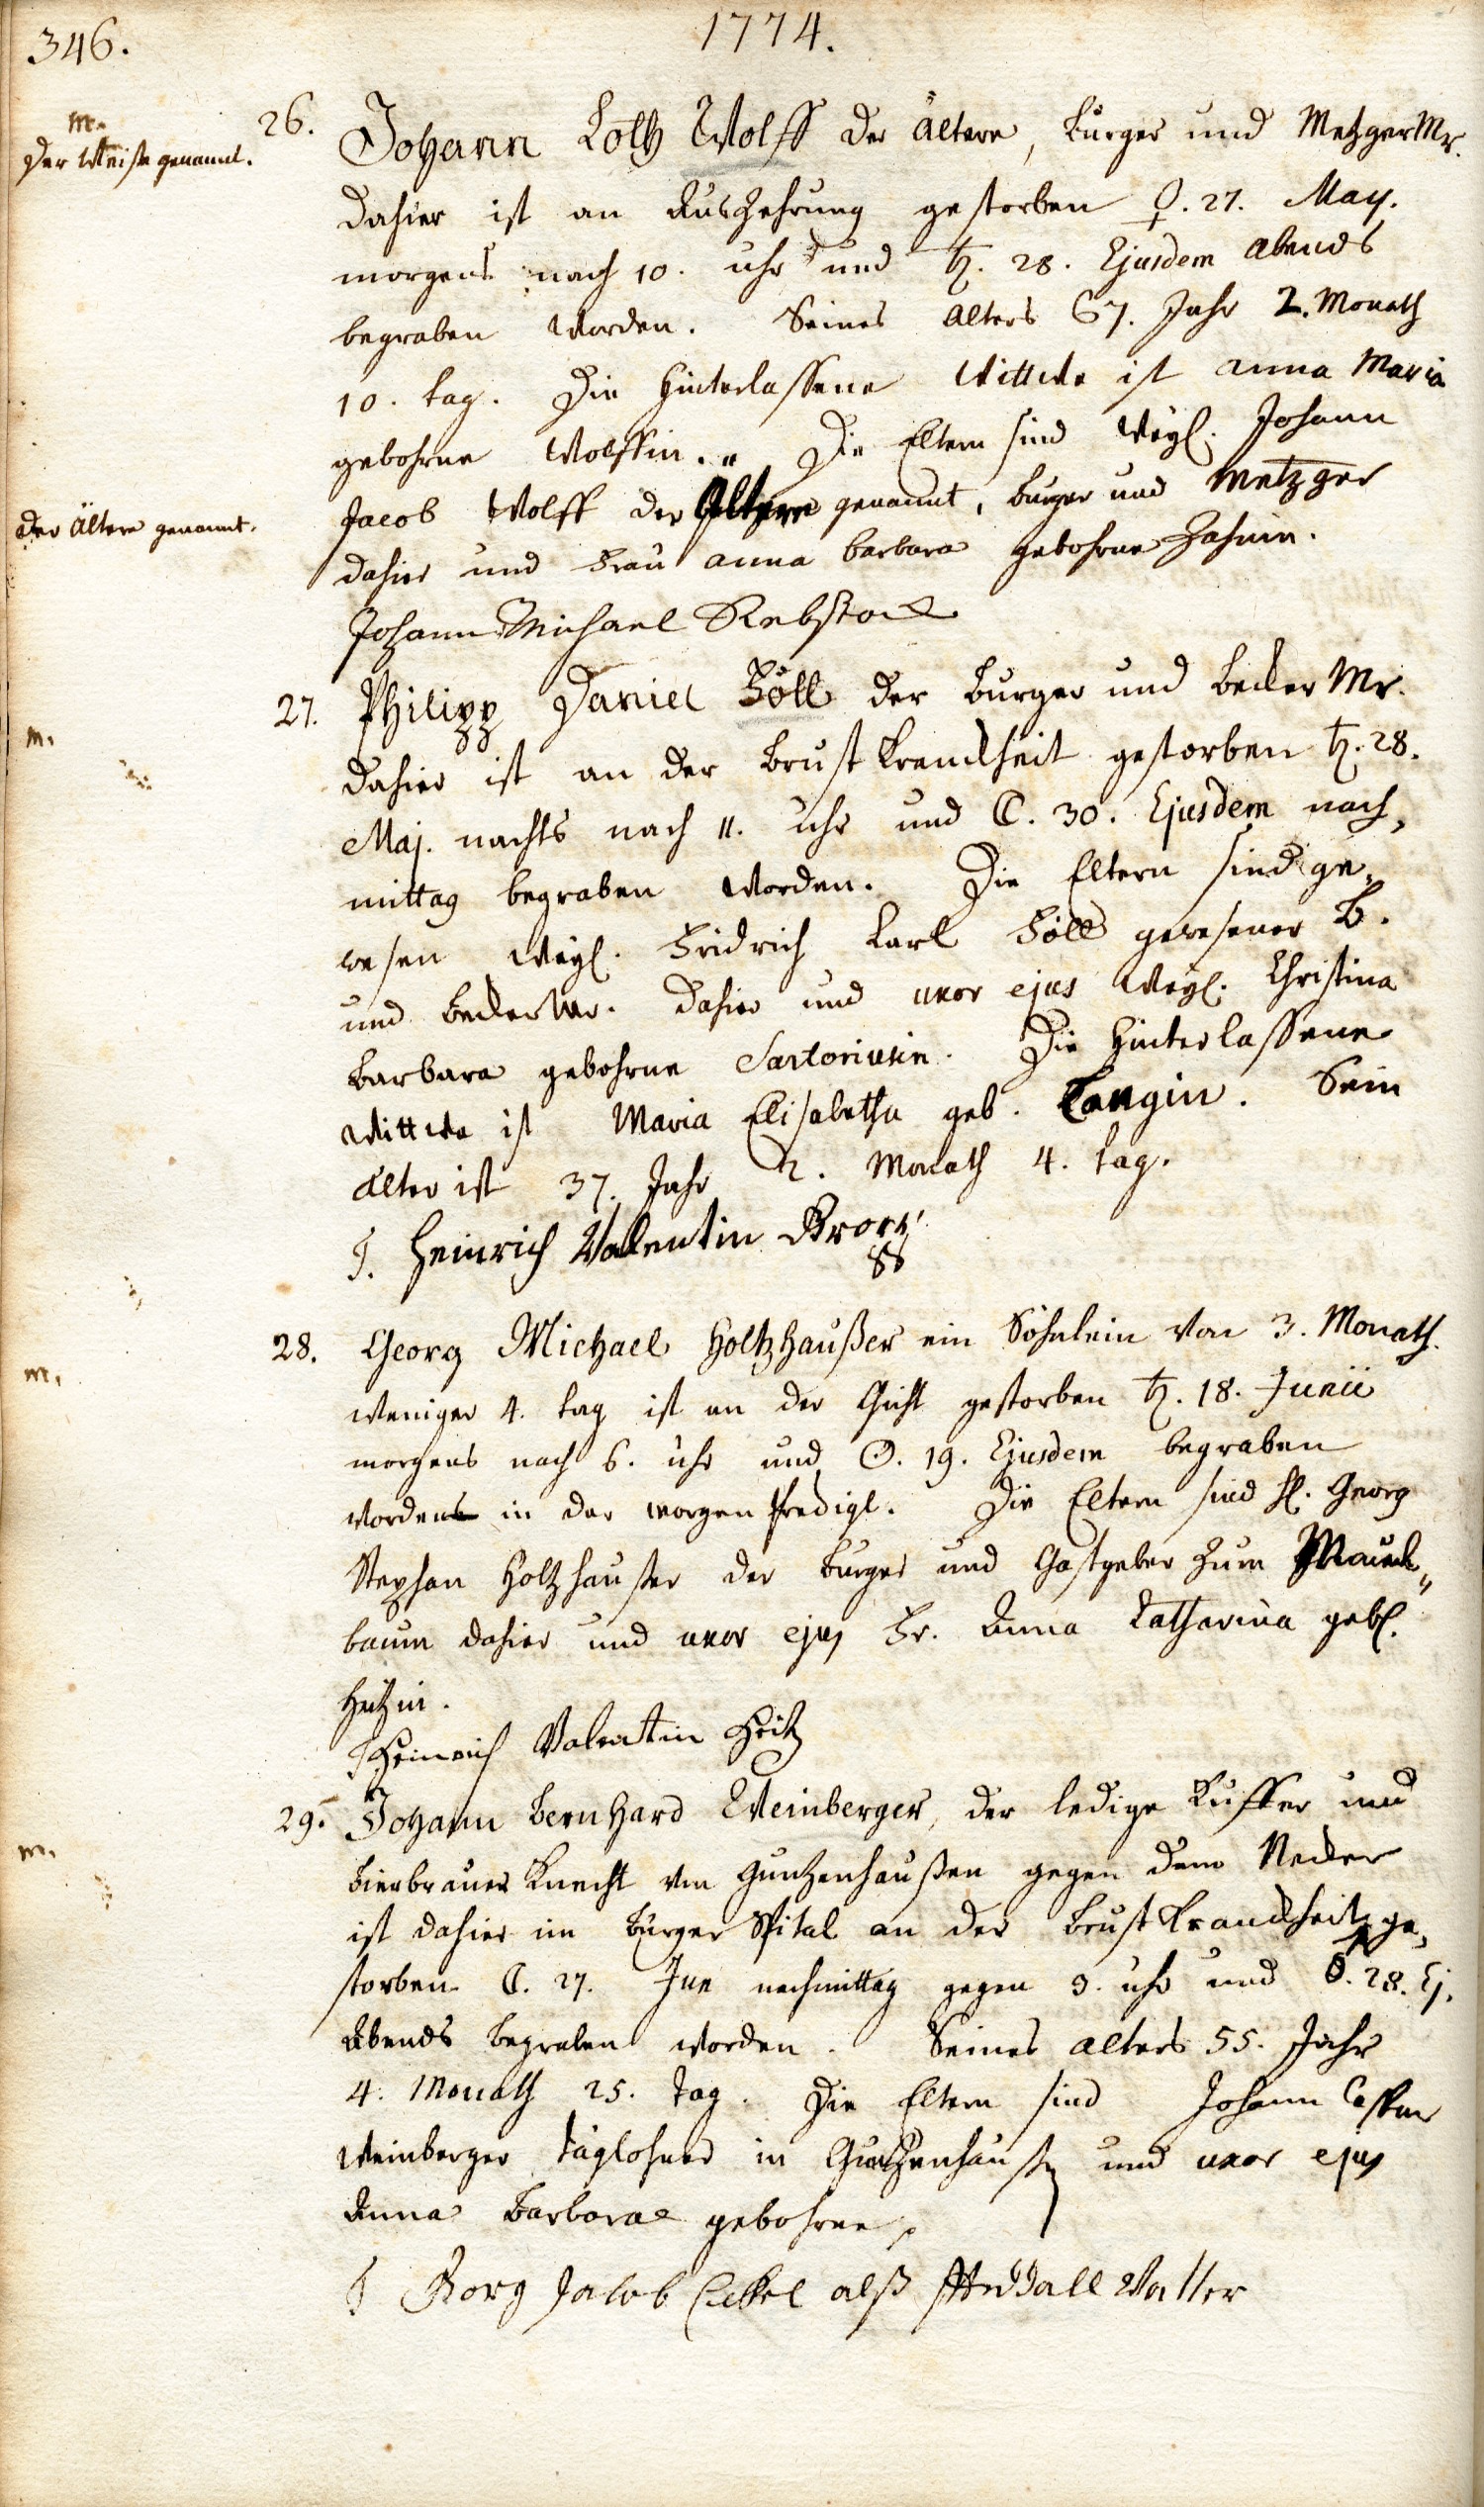 346.
1774.
m.
Der Weise genannt.
26. Johann Loth Wolff der ältere, burger und MetzgerMr.
dahier ist an Auszehrung gestorben ♀. 27. May.
morgens nach 10. uhr und ♄. 28. Ejusdem abends
begraben worden. Seines Alters 67. Jahr 2. Monath
10. tag. Die hinterlassene Wittwe ist anna Maria
gebohrne Wolffin. Die Eltern sind weyl. Johann
der Ältere genannt.
Jacob Wolff der genannt, burger und Metzger
dahier und Frau anna barbara gebohrne Zahnin.
Johann Michael Rebstock
m.
27. Philipp Daniel Föll der burger und becker Mr.
dahier ist an der brust kranckheit gestorben ♄. 28.
Maj. nachts nach 11. uhr und ☾. 30. Ejusdem nach,
mittag begraben worden. Die Eltern sind ge,
wesen weyl. Fridrich Carl Föll gewesener B.
und becker Mr. dahier und uxor ejus weyl. Christina
barbara gebohrne Sartoriusin. Die hinterlassene
Wittwe ist Maria Elisabetha geb. Langin. Sein
alter ist 37. Jahr 2. Monath 4. tag.
T. Heinrich Valentin
m.
28. Georg Michael Holtzhaußer ein Söhnlein von 3. Monath.
weniger 4. tag ist an der Gicht gestorben ♄. 18. Junii
morgens nach 6. uhr und ☉. 19. Ejusdem begraben
worden in der morgen Predigt. Die Eltern sind H. Georg
Stephan Holtzhaußer der burger und Gastgeber zum
baum dahier und uxor ejus Fr. Anna Catharina geb.
Heitzin.
T Heinrich Valentin Heitz
m.
29. Johann bernhard Weinberger, der ledige Kuffer und
bierbrauer Knecht von Guntzenhaußen gegen dem Necker
ist dahier im burger Spital an der brust kranckheit ge,
storben ☾. 27. Jun nachmittag gegen 3. uhr und ♂. 28. Ej.
Abends begraben worden. Seines alters 55. Jahr
4. Monath 25. Tag. Die Eltern sind Johann Caspar
Weinberger taglohner in Guntzenhaußen und uxor ejus
Anna Barbara gebohrne
T Georg Jacob Eckel alß Vatter